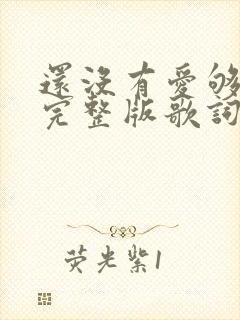 還沒有愛够
完整版歌詞
荧光紫1